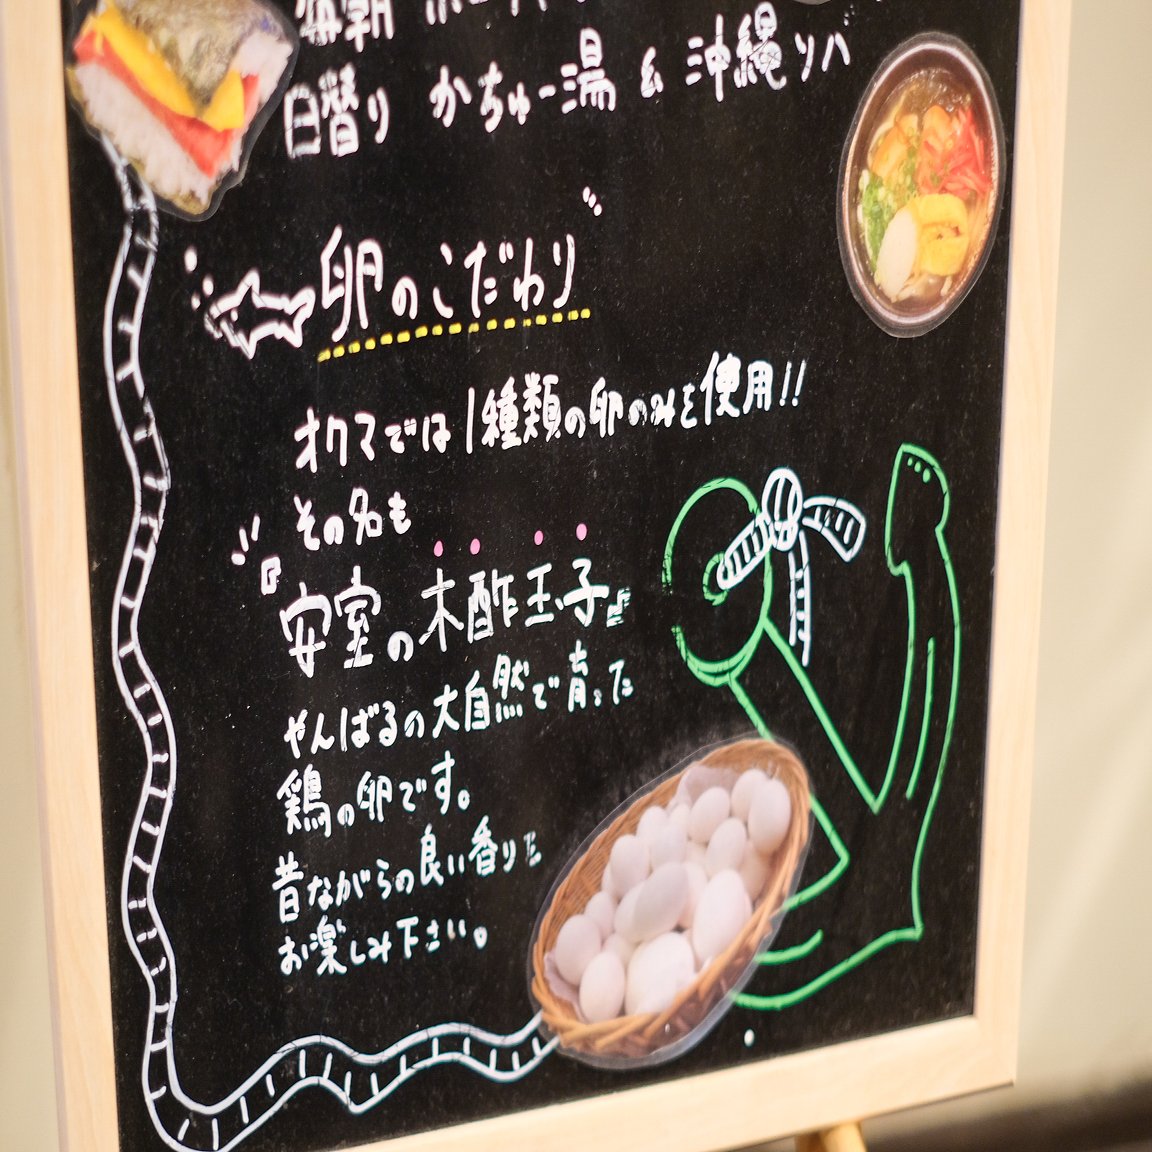 毎朝
日替り かちゅー湯 & 沖縄ソバ
卵のこだわり
オクマでは1種類の卵のみを使用!!
その名も
『安室の木酢玉子』
やんばるの大自然で育った
鶏の卵です。
昔ながらの良い香りを
お楽しみ下さい。